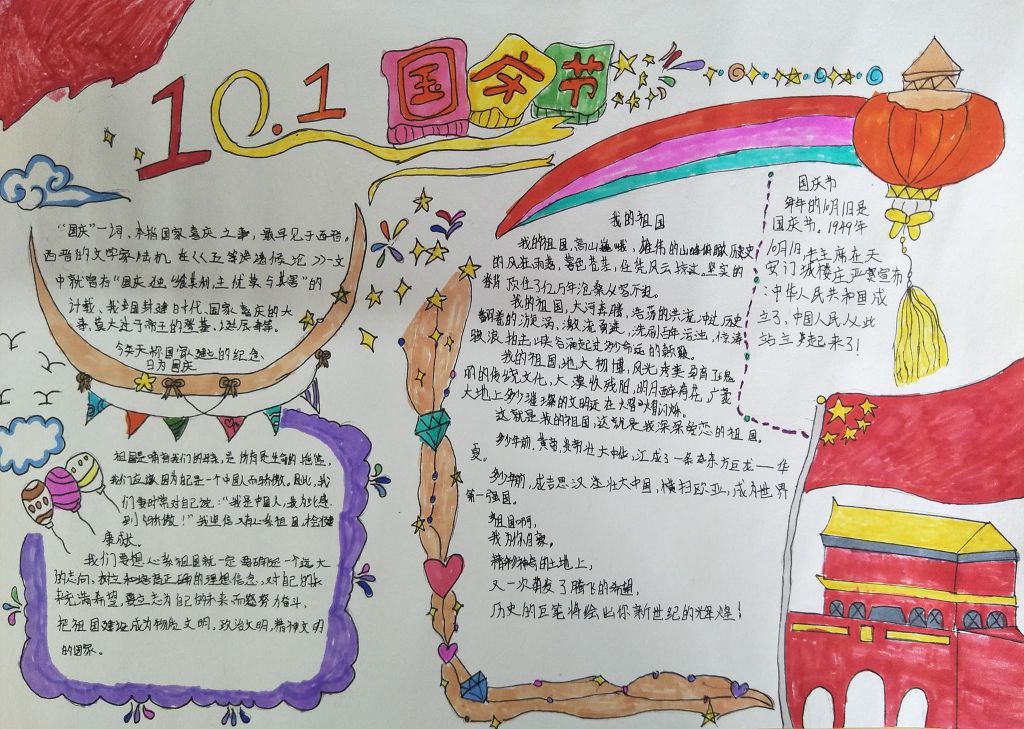 10.1 国庆节
“国庆”一词,本指国家喜庆之事,最早见于西晋。
西晋的文学家陆机在《五等诸侯论》一文
中就曾有“国庆独飨其利,主忧莫与其害”的
记载、我国封建时代、国家喜庆的大
事,莫大过于帝王的登基、诞辰等。
今天称国家建立的纪念
日为国庆
祖国是哺育我们的母亲,是
我们应该因为自己是一个中国人而骄傲。因此,我
们要时常对自己说:“我是中国人,我为此感
到骄傲!”我坚信
康成长。
我们要想心系祖国就一定要确定一个远大
的志向,树立和培育正确的理想信念,对自己的未
来充满希望,要立志为自己的未来而努力奋斗,
把祖国建设成为物质文明,政治文明,精神文明
的国家。
我的祖国
我的祖国,高山巍峨,雄伟的山峰俯瞰历史
的风狂雨落,暮色苍茫,任凭风云掠过。坚实的
脊背顶住了亿万年沧桑从容不迫。
我的祖国,大河奔腾,浩荡的洪流冲过历史
翻卷的漩涡,激流勇进,洗刷百年污浊,惊涛
骇浪拍击峡谷涌起过多少命运的颠簸。
我的祖国,地大物博,风光秀美孕育了瑰
丽的传统文化,大漠收残阳,明月醉荷花,广袤
大地上多少璀璨的文明还在熠熠闪烁。
这就是我的祖国,这就是我深深爱恋的祖国。
多少年前,黄帝
夏。
多少年前,成吉思汗
大中国,横扫欧亚,成为世界
第一强国。
祖国啊,
我为你自豪。
精彩神奇的土地上,
又一次萌发了腾飞的希望,
历史的巨笔将绘出你新世纪的辉煌!
国庆节
每年的10月1日是
国庆节。1949年
10月1日,毛主席在天
安门城楼庄严宣布
:中华人民共和国成
立了,中国人民从此
站立起来了!